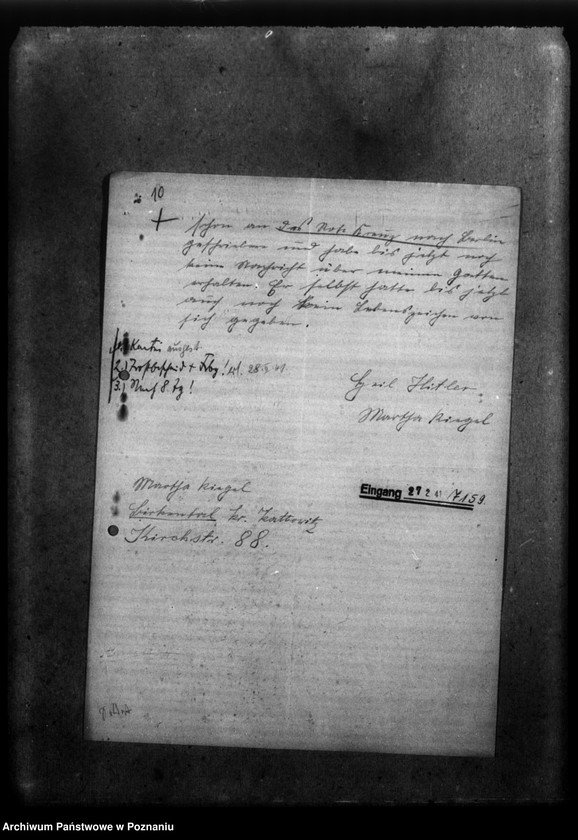 10
schon an das Rote Kreuz nach Berlin
geschrieben und habe bis jetzt noch
keine Nachricht über meinen Gatten
erhalten. Er selbst hatte bis jetzt
auch noch kein Lebenszeichen von
sich gegeben.
1.) Kartei
2.) Zwbescheid +
3.) Nach 8 Tg!
Heil Hitler.
Martha Kiegel
Martha Kiegel
Eingang 27 2 41 /7159
Birkental Kr. Kattowitz
Kirchstr. 88.
Archiwum Państwowe w Poznaniu